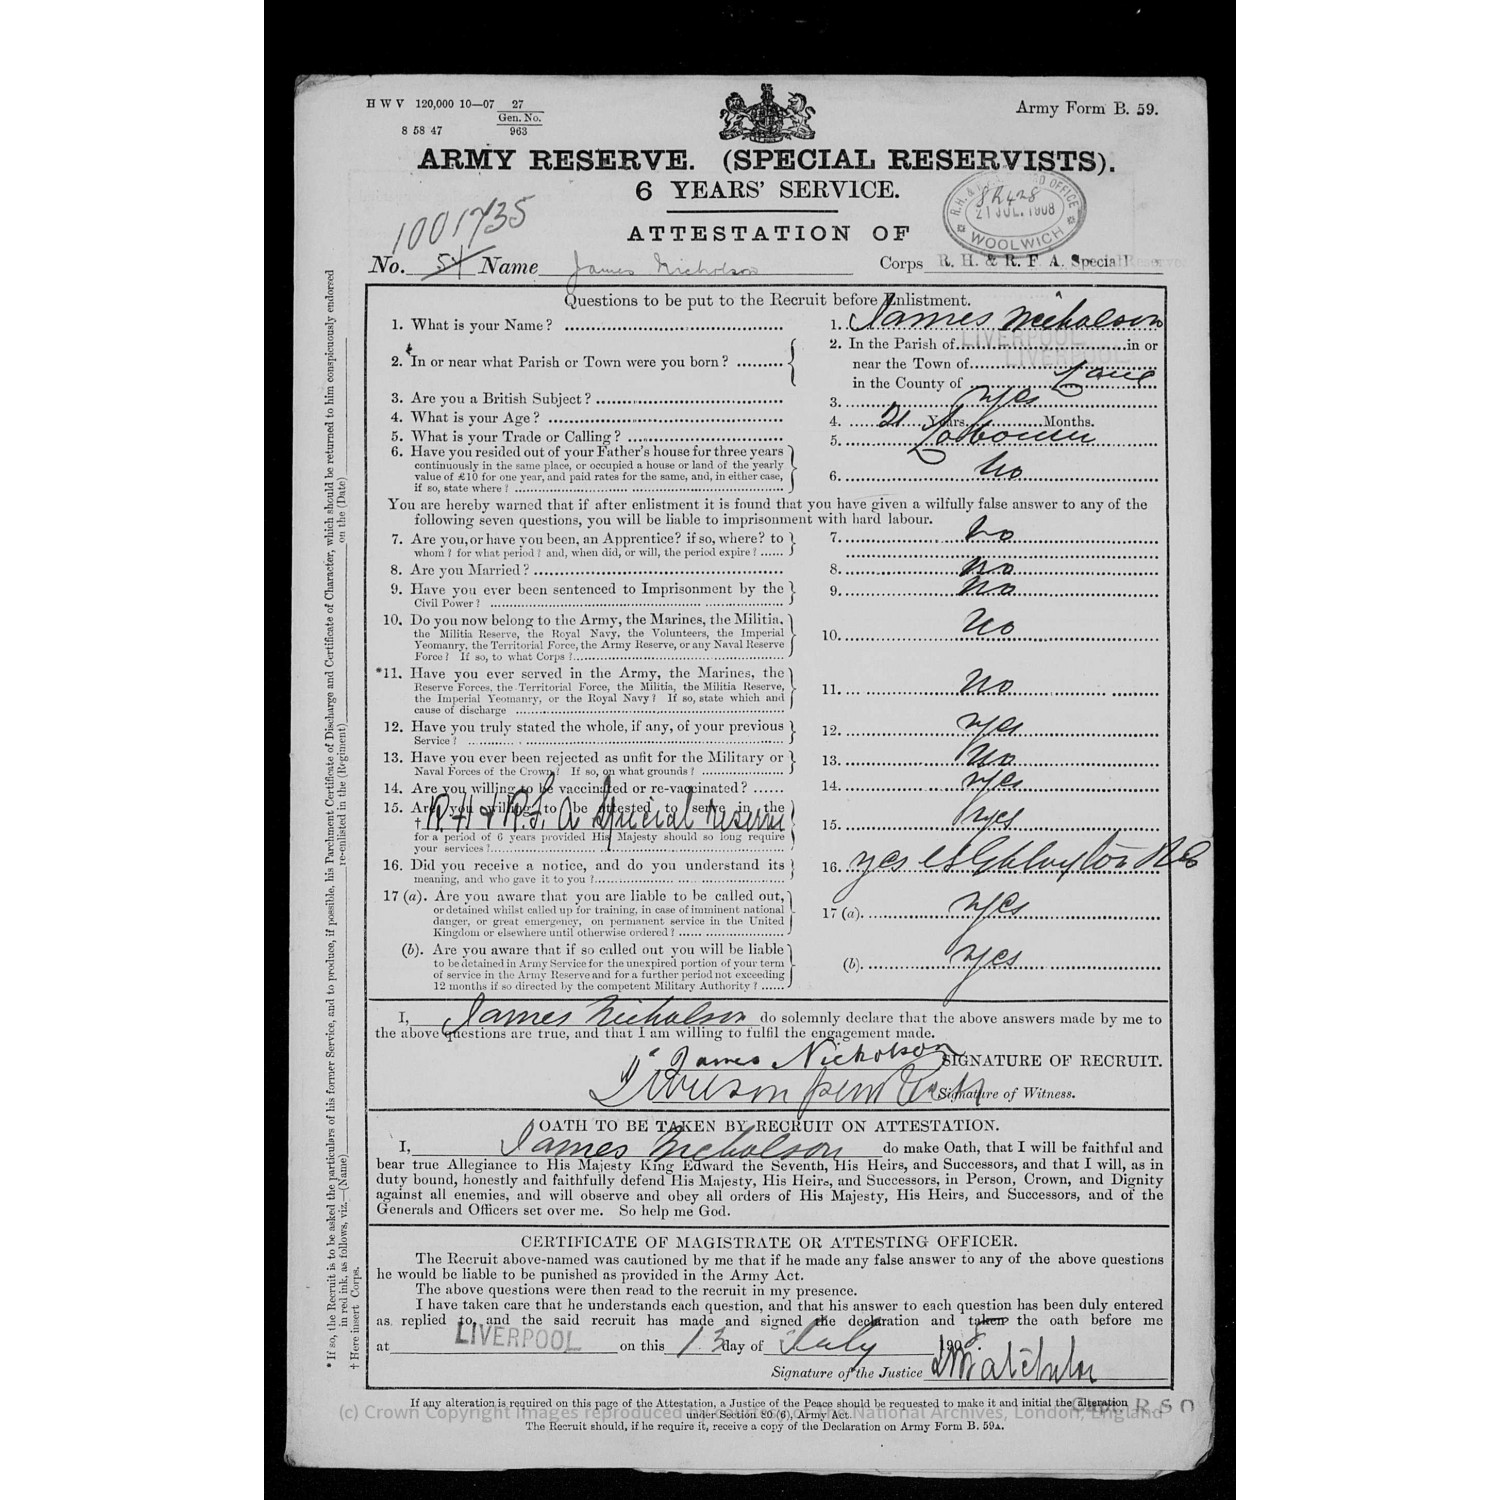 H W V 120,000 10—07 27
Gen. No.
8 58 47 963
Army Form B. 59.
ARMY RESERVE. (SPECIAL RESERVISTS).
6 YEARS' SERVICE.
21 JUL. 1908
WOOLWICH
1001735
ATTESTATION OF
No. 54 Name James Nicholson Corps R. H. & R. F. A. Special Reserve
Questions to be put to the Recruit before Enlistment.
1. What is your Name? 1. James Nicholson
2. In or near what Parish or Town were you born? 2. In the Parish of LIVERPOOL in or
near the Town of LIVERPOOL
in the County of Lanc
3. Are you a British Subject? 3. Yes
4. What is your Age? 4. 21 Years Months.
5. What is your Trade or Calling? 5. Labourer
6. Have you resided out of your Father's house for three years
continuously in the same place, or occupied a house or land of the yearly
value of £10 for one year, and paid rates for the same, and, in either case,
if so, state where? 6. No
You are hereby warned that if after enlistment it is found that you have given a wilfully false answer to any of the
following seven questions, you will be liable to imprisonment with hard labour.
7. Are you, or have you been, an Apprentice? if so, where? to 7. No
whom? for what period? and, when did, or will, the period expire?
8. Are you Married? 8. No
9. Have you ever been sentenced to Imprisonment by the 9. No
Civil Power?
10. Do you now belong to the Army, the Marines, the Militia,
the Militia Reserve, the Royal Navy, the Volunteers, the Imperial
Yeomanry, the Territorial Force, the Army Reserve, or any Naval Reserve
Force? If so, to what Corps? 10. No
*11. Have you ever served in the Army, the Marines, the
Reserve Forces, the Territorial Force, the Militia, the Militia Reserve,
the Imperial Yeomanry, or the Royal Navy? If so, state which and
cause of discharge 11. No
12. Have you truly stated the whole, if any, of your previous
Service? 12. Yes
13. Have you ever been rejected as unfit for the Military or
Naval Forces of the Crown? If so, on what grounds? 13. No
14. Are you willing to be vaccinated or re-vaccinated? 14. Yes
15. Are you willing to be attested to serve in the
† R. H & R. F. A Special Reserve
for a period of 6 years provided His Majesty should so long require
your services? 15. Yes
16. Did you receive a notice, and do you understand its
meaning, and who gave it to you? 16. yes
17 (a). Are you aware that you are liable to be called out,
or detained whilst called up for training, in case of imminent national
danger, or great emergency, on permanent service in the United
Kingdom or elsewhere until otherwise ordered? 17 (a). Yes
(b). Are you aware that if so called out you will be liable
to be detained in Army Service for the unexpired portion of your term
of service in the Army Reserve and for a further period not exceeding
12 months if so directed by the competent Military Authority? (b). Yes
I, James Nicholson do solemnly declare that the above answers made by me to
the above questions are true, and that I am willing to fulfil the engagement made.
James Nicholson SIGNATURE OF RECRUIT.
Signature of Witness.
OATH TO BE TAKEN BY RECRUIT ON ATTESTATION.
I, James Nicholson do make Oath, that I will be faithful and
bear true Allegiance to His Majesty King Edward the Seventh, His Heirs, and Successors, and that I will, as in
duty bound, honestly and faithfully defend His Majesty, His Heirs, and Successors, in Person, Crown, and Dignity
against all enemies, and will observe and obey all orders of His Majesty, His Heirs, and Successors, and of the
Generals and Officers set over me. So help me God.
CERTIFICATE OF MAGISTRATE OR ATTESTING OFFICER.
The Recruit above-named was cautioned by me that if he made any false answer to any of the above questions
he would be liable to be punished as provided in the Army Act.
The above questions were then read to the recruit in my presence.
I have taken care that he understands each question, and that his answer to each question has been duly entered
as replied to, and the said recruit has made and signed the declaration and taken the oath before me
at LIVERPOOL on this 13 day of July 1908.
Signature of the Justice
If any alteration is required on this page of the Attestation, a Justice of the Peace should be requested to make it and initial the alteration
under Section 80 (6), Army Act.
The Recruit should, if he require it, receive a copy of the Declaration on Army Form B. 59A.
Capt. R S O
(c) Crown Copyright Images reproduced by courtesy of The National Archives, London, England
* If so, the Recruit is to be asked the particulars of his former Service, and to produce, if possible, his Parchment Certificate of Discharge and Certificate of Character, which should be returned to him conspicuously endorsed
in red ink, as follows, viz.—(Name) re-enlisted in the (Regiment) on the (Date)
† Here insert Corps.